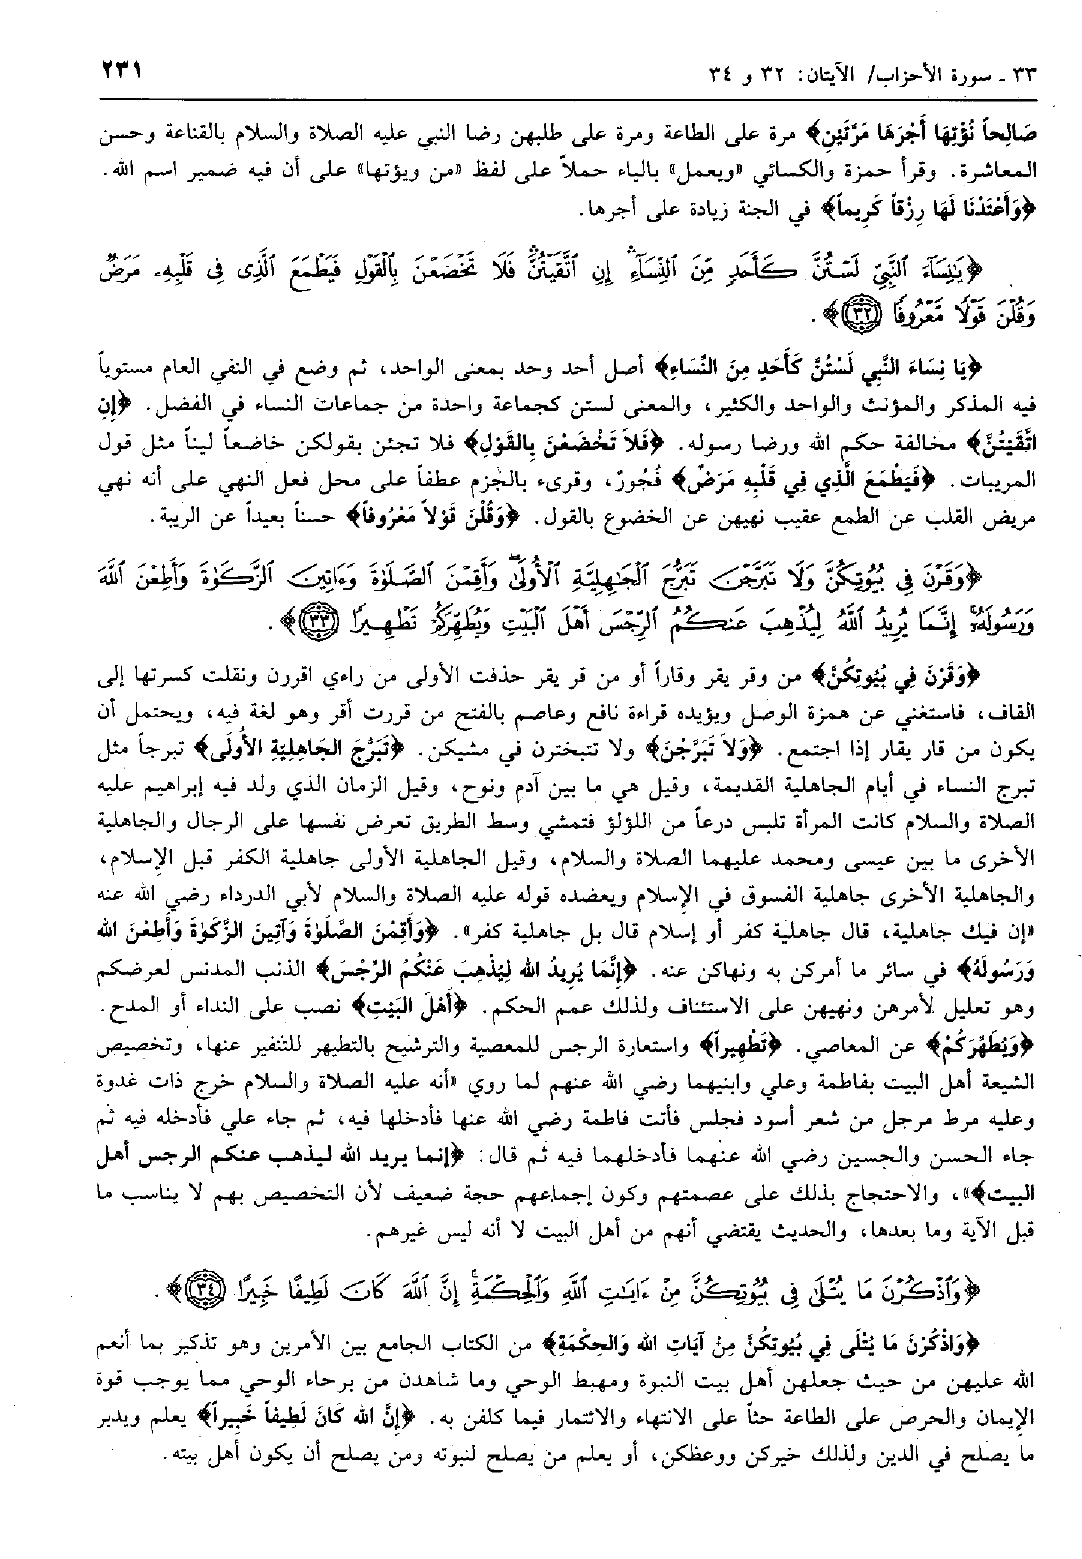 ٣٣ ـ سورة الأحزاب/ الآيتان: ٣٢ و ٣٤
٢٣١
صَالِحاً نُؤْتِهَا أَجْرَهَا مَرَّتَيْنِ﴾ مرة على الطاعة ومرة على طلبهن رضا النبي عليه الصلاة والسلام بالقناعة وحسن
المعاشرة. وقرأ حمزة والكسائي «ويعمل» بالياء حملاً على لفظ «من ويؤتها» على أن فيه ضمير اسم الله.
﴿وَأَعْتَدْنَا لَهَا رِزْقاً كَرِيماً﴾ في الجنة زيادة على أجرها.
﴿يَٰنِسَآءَ ٱلنَّبِيِّ لَسۡتُنَّ كَأَحَدٖ مِّنَ ٱلنِّسَآءِ إِنِ ٱتَّقَيۡتُنَّۚ فَلَا تَخۡضَعۡنَ بِٱلۡقَوۡلِ فَيَطۡمَعَ ٱلَّذِي فِي قَلۡبِهِۦ مَرَضٞ
وَقُلۡنَ قَوۡلٗا مَّعۡرُوفٗا ﴿٣٢﴾﴾.
﴿يَا نِسَاءَ النَّبي لَسْتُنَّ كَأَحَدٍ مِنَ النِّسَاءِ﴾ أصل أحد وحد بمعنى الواحد، ثم وضع في النفي العام مستوياً
فيه المذكر والمؤنث والواحد والكثير، والمعنى لستن كجماعة واحدة من جماعات النساء في الفضل. ﴿إِنِ
اتَّقَيْتُنَّ﴾ مخالفة حكم الله ورضا رسوله. ﴿فَلاَ تَخْضَعْنَ بِالقَوْلِ﴾ فلا تجئن بقولكن خاضعاً ليناً مثل قول
المريبات. ﴿فَيَطْمَعَ الَّذِي فِي قَلْبِهِ مَرَضٌ﴾ فُجورٌ، وقرىء بالجزم عطفاً على محل فعل النهي على أنه نهي
مريض القلب عن الطمع عقيب نهيهن عن الخضوع بالقول. ﴿وَقُلْنَ قَوْلاً مَعْرُوفاً﴾ حسناً بعيداً عن الريبة.
﴿وَقَرۡنَ فِي بُيُوتِكُنَّ وَلَا تَبَرَّجۡنَ تَبَرُّجَ ٱلۡجَٰهِلِيَّةِ ٱلۡأُولَىٰۖ وَأَقِمۡنَ ٱلصَّلَوٰةَ وَءَاتِينَ ٱلزَّكَوٰةَ وَأَطِعۡنَ ٱللَّهَ
وَرَسُولَهُۥٓۚ إِنَّمَا يُرِيدُ ٱللَّهُ لِيُذۡهِبَ عَنكُمُ ٱلرِّجۡسَ أَهۡلَ ٱلۡبَيۡتِ وَيُطَهِّرَكُمۡ تَطۡهِيرٗا ﴿٣٣﴾﴾.
﴿وَقَرْنَ فِي بُيُوتِكُنَّ﴾ من وقر يقر وقاراً أو من قر يقر حذفت الأولى من راءي اقررن ونقلت كسرتها إلى
القاف، فاستغني عن همزة الوصل ويؤيده قراءة نافع وعاصم بالفتح من قررت أقر وهو لغة فيه، ويحتمل أن
يكون من قار يقار إذا اجتمع. ﴿وَلاَ تَبَرَّجْنَ﴾ ولا تتبخترن في مشيكن. ﴿تَبَرُّجَ الجَاهِلِيَّةِ الأُولَى﴾ تبرجاً مثل
تبرج النساء في أيام الجاهلية القديمة، وقيل هي ما بين آدم ونوح، وقيل الزمان الذي ولد فيه إبراهيم عليه
الصلاة والسلام كانت المرأة تلبس درعاً من اللؤلؤ فتمشي وسط الطريق تعرض نفسها على الرجال والجاهلية
الأخرى ما بين عيسى ومحمد عليهما الصلاة والسلام، وقيل الجاهلية الأولى جاهلية الكفر قبل الإِسلام،
والجاهلية الأخرى جاهلية الفسوق في الإِسلام ويعضده قوله عليه الصلاة والسلام لأبي الدرداء رضي الله عنه
«إن فيك جاهلية، قال جاهلية كفر أو إسلام قال بل جاهلية كفر». ﴿وَأَقِمْنَ الصَّلَوٰةَ وَآتِينَ الزَّكَوٰةَ وَأَطِعْنَ الله
وَرَسُولَهُ﴾ في سائر ما أمركن به ونهاكن عنه. ﴿إِنَّمَا يُرِيدُ الله لِيُذْهِبَ عَنْكُمُ الرِّجْسَ﴾ الذنب المدنس لعرضكم
وهو تعليل لأمرهن ونهيهن على الاستئناف ولذلك عمم الحكم. ﴿أَهْلَ البَيْتِ﴾ نصب على النداء أو المدح.
﴿وَيُطَهِّرَكُمْ﴾ عن المعاصي. ﴿تَطْهِيراً﴾ واستعارة الرجس للمعصية والترشيح بالتطهير للتنفير عنها، وتخصيص
الشيعة أهل البيت بفاطمة وعلي وابنيهما رضي الله عنهم لما روي «أنه عليه الصلاة والسلام خرج ذات غدوة
وعليه مرط مرجل من شعر أسود فجلس فأتت فاطمة رضي الله عنها فأدخلها فيه، ثم جاء علي فأدخله فيه ثم
جاء الحسن والحسين رضي الله عنهما فأدخلهما فيه ثم قال: ﴿إنما يريد الله ليذهب عنكم الرجس أهل
البيت﴾»، والاحتجاج بذلك على عصمتهم وكون إجماعهم حجة ضعيف لأن التخصيص بهم لا يناسب ما
قبل الآية وما بعدها، والحديث يقتضي أنهم من أهل البيت لا أنه ليس غيرهم.
﴿وَٱذۡكُرۡنَ مَا يُتۡلَىٰ فِي بُيُوتِكُنَّ مِنۡ ءَايَٰتِ ٱللَّهِ وَٱلۡحِكۡمَةِۚ إِنَّ ٱللَّهَ كَانَ لَطِيفًا خَبِيرًا ﴿٣٤﴾﴾.
﴿وَاذْكُرْنَ مَا يُتْلَى فِي بُيُوتِكُنَّ مِنْ آيَاتِ الله وَالحِكْمَةِ﴾ من الكتاب الجامع بين الأمرين وهو تذكير بما أنعم
الله عليهن من حيث جعلهن أهل بيت النبوة ومهبط الوحي وما شاهدن من برحاء الوحي مما يوجب قوة
الإِيمان والحرص على الطاعة حثاً على الانتهاء والائتمار فيما كلفن به. ﴿إِنَّ الله كَانَ لَطِيفاً خَبِيراً﴾ يعلم ويدبر
ما يصلح في الدين ولذلك خيركن ووعظكن، أو يعلم من يصلح لنبوته ومن يصلح أن يكون أهل بيته.